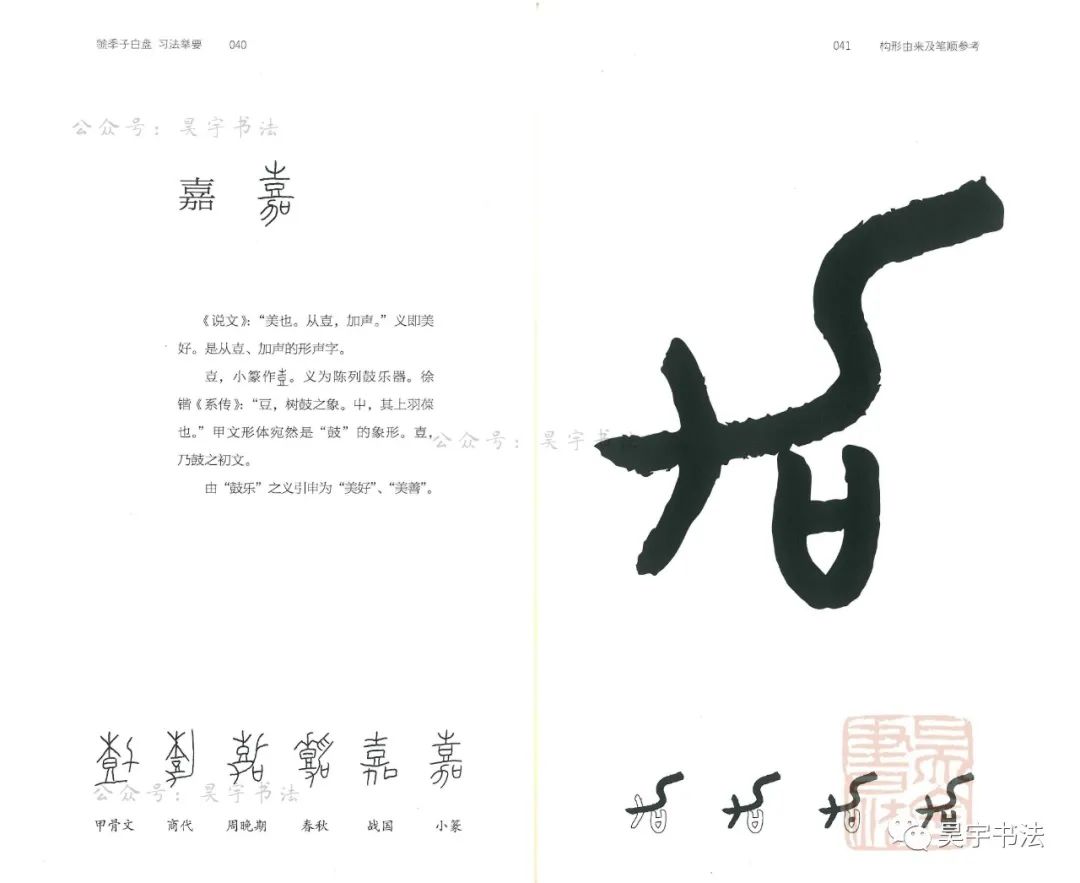 虢季子白盘 习法举要 040
公众号：昊宇书法
嘉 嘉
《说文》：“美也。从壴，加声。”义即美
好。是从壴、加声的形声字。
壴，小篆作壴。义为陈列鼓乐器。徐
锴《系传》：“豆，树鼓之象。屮，其上羽葆
也。”甲文形体宛然是“鼓”的象形。壴，
乃鼓之初文。
由“鼓乐”之义引申为“美好”、“美善”。
公众号：昊宇书法
甲骨文 商代 周晚期 春秋 战国 小篆
041 构形由来及笔顺参考
公众号：昊宇书法
昊宇书法
昊宇书法